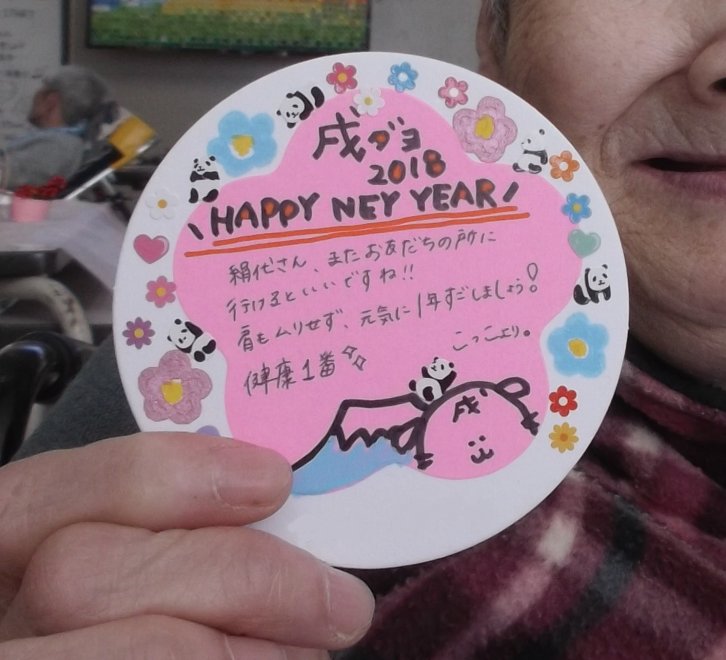 戌ダヨ
2018
\HAPPY NEY YEAR/
絹代さん、またお友だちの所に
行けるといいですね!!
肩もムリせず、元気に1年すごしましょう!
健康1番
こっこより。
戌